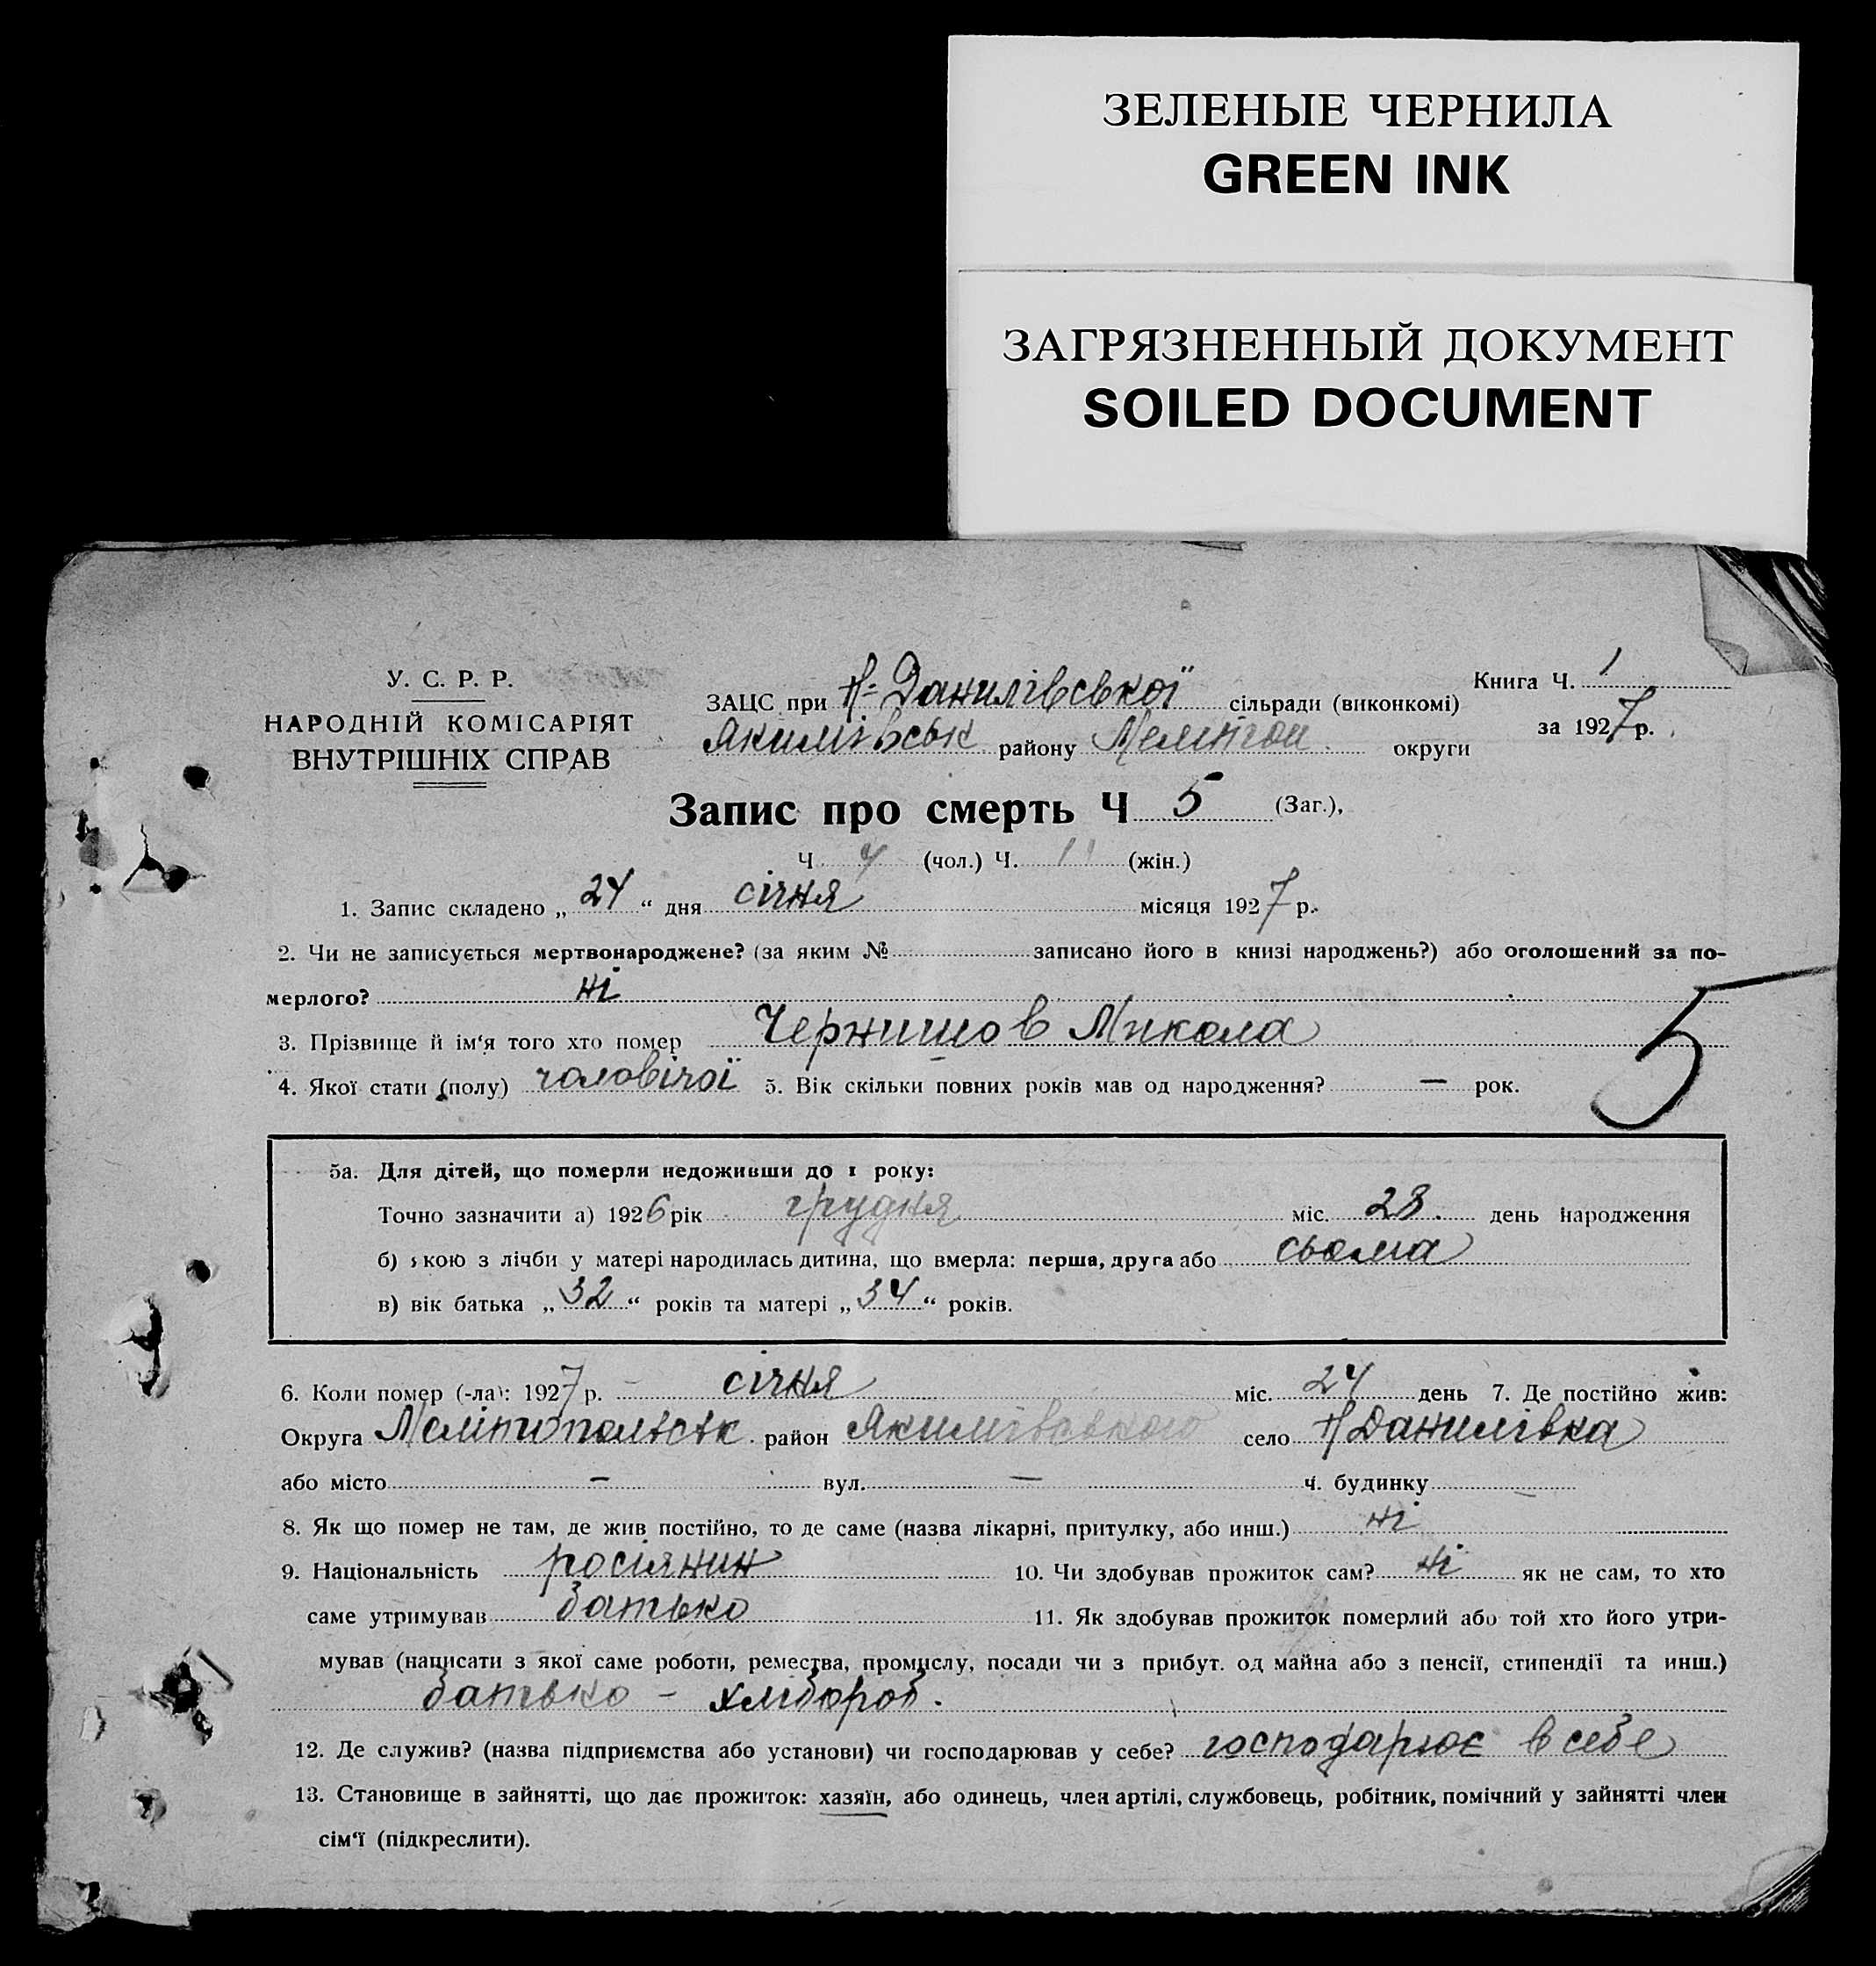 ЗЕЛЕНЫЕ ЧЕРНИЛА
GREEN INK
ЗАГРЯЗНЕННЫЙ ДОКУМЕНТ
SOILED DOCUMENT
У. С. Р. Р.
НАРОДНІЙ КОМІСАРІЯТ
ВНУТРІШНІХ СПРАВ
ЗАЦС при Н-Данилівської сільради (виконкомі)
Якимівськ району округи
Книга Ч. 1
за 1927 р.
Запис про смерть Ч 5 (Заг.),
Ч 4 (чол.) Ч. (жін.)
1. Запис складено „ 24 “ дня січня місяця 1927 р.
2. Чи не записується мертвонароджене? (за яким № записано його в книзі народжень?) або оголошений за по-
мерлого? ні
3. Прізвище й ім‘я того хто помер Чернишов Микола
5
4. Якої стати (полу) чоловічої 5. Вік скільки повних років мав од народження? — рок.
5а. Для дітей, що померли недоживши до 1 року:
Точно зазначити а) 1926 рік грудня міс. 28. день народження
б) якою з лічби у матері народилась дитина, що вмерла: перша, друга або сьома
в) вік батька „ 32 “ років та матері „ 34 “ років.
6. Коли помер (-ла): 1927 р. – січня міс. 24 день 7. Де постійно жив:
Округа Мелітопольськ район Якимівського село Н Данилівка
або місто – вул. — ч. будинку –
8. Як що помер не там, де жив постійно, то де саме (назва лікарні, притулку, або инш.) ні
9. Національність росіянин 10. Чи здобував прожиток сам? ні як не сам, то хто
саме утримував батько 11. Як здобував прожиток померлий або той хто його утри-
мував (написати з якої саме роботи, ремества, промислу, посади чи з прибут. од майна або з пенсії, стипендії та инш.)
батько – хлібороб.
12. Де служив? (назва підприємства або установи) чи господарював у себе? господарює в себе
13. Становище в зайнятті, що дає прожиток: хазяїн, або одинець, член артілі, службовець, робітник, помічний у зайнятті член
сім‘ї (підкреслити).